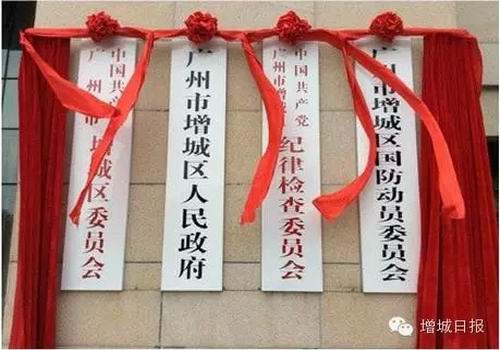 中国共产党
广州市
增城区委员会
广州市增城区人民政府
中国共产党
广州市增城
纪律检查委员会
广州市增城区国防动员委员会
增城日报